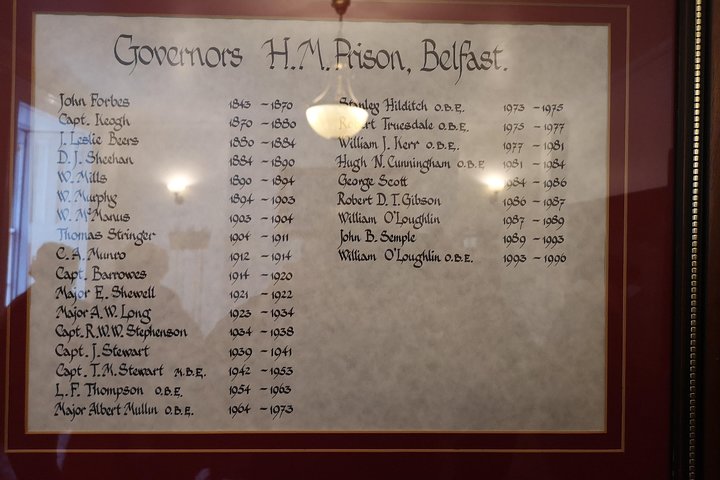 Governors H.M. Prison, Belfast.
John Forbes 1843 - 1870
Capt. Keogh 1870 - 1880
J. Leslie Beers 1880 - 1884
D. J. Sheehan 1884 - 1890
W. Mills 1890 - 1894
W. Murphy 1894 - 1903
W. McManus 1903 - 1904
Thomas Stringer 1904 - 1911
C. A. Munro 1912 - 1914
Capt. Barrowes 1914 - 1920
Major E. Shewell 1921 - 1922
Major A. W. Long 1923 - 1934
Capt. R.W.W. Stephenson 1934 - 1938
Capt. J. Stewart 1939 - 1941
Capt. T. M. Stewart M.B.E. 1942 - 1953
L. F. Thompson O.B.E. 1954 - 1963
Major Albert Mullin O.B.E. 1964 - 1973
Stanley Hilditch O.B.E. 1973 - 1975
Robert Truesdale O.B.E. 1975 - 1977
William J. Kerr O.B.E. 1977 - 1981
Hugh N. Cunningham O.B.E 1981 - 1984
George Scott 1984 - 1986
Robert D. T. Gibson 1986 - 1987
William O'Loughlin 1987 - 1989
John B. Semple 1989 - 1993
William O'Loughlin O.B.E. 1993 - 1996